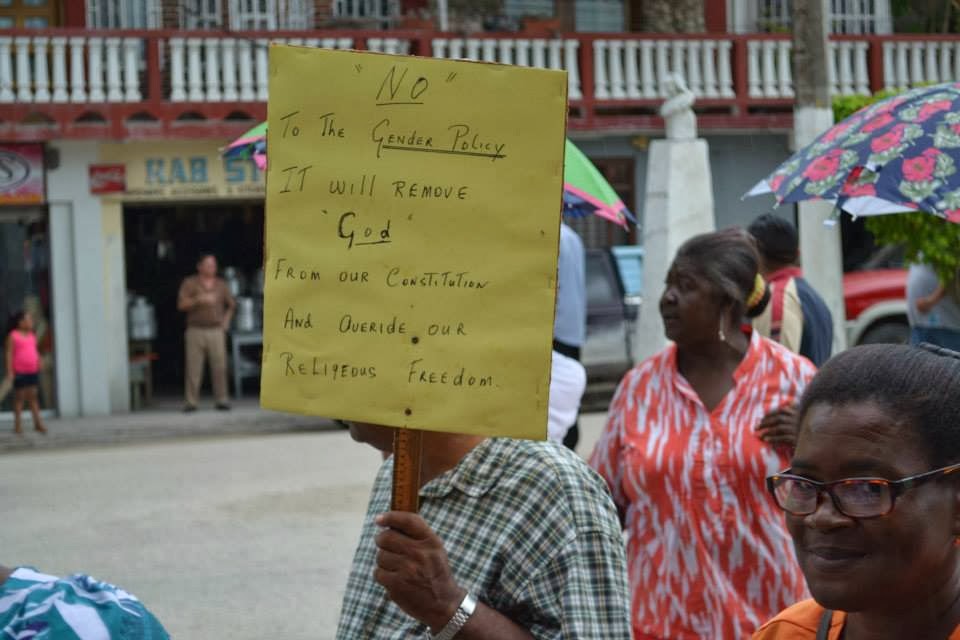 "NO"
To The Gender Policy
IT will REMOVE
"God"
From our Constitution
And Overide our
Religeous Freedom.
Coca-Cola
RAB ST
S